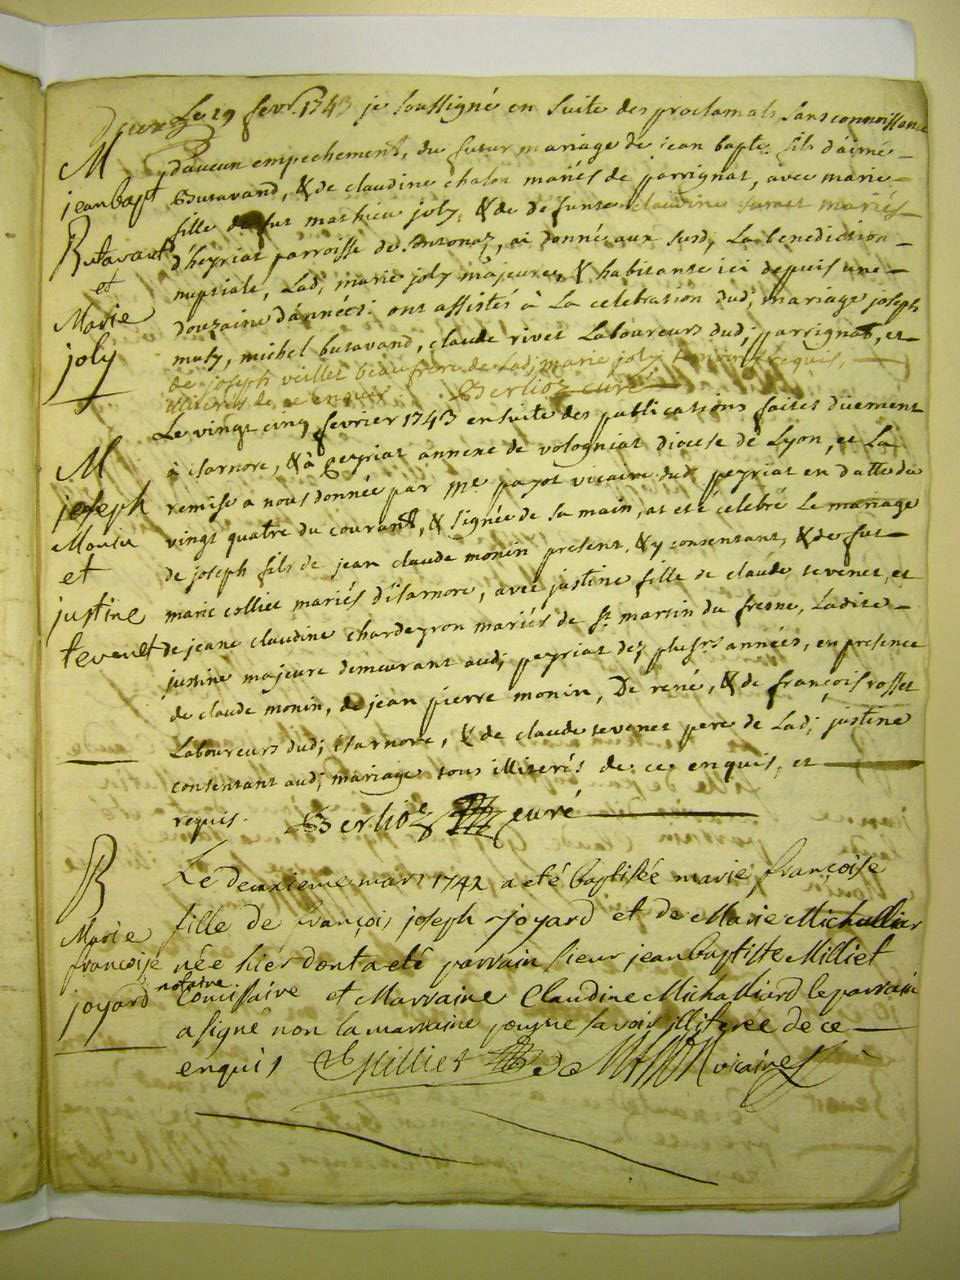 Le 19 fevr. 1743 je soussigné en suite des proclamats sans connoissance
M
jean bapt
Butavant
et
Marie
joly
d'aucun empechement, du futur mariage de jean bapte. fils d'aimé
Butavand, & de claudine chalon mariés de parrignat, avec marie
fille de fut mathieu joly, & de defunte claudine mariés
d'heyriat parroisse de, ai donné aux susd; La benediction
nuptiale, Lad; marie joly majeure, & habitante ici depuis une
douzaine d'années: ont assistés à La celebration dud; mariage joseph
maty, michel butavand, claude rivet Laboureurs dud; parrignat, et
de joseph veillet beaufrere de Lad; marie joly requis,
illiterés de ce enquis Berlioz curé
M
joseph
Monin
et
justine
tevenet
Le vingt cinq fevrier 1743 ensuite des publications faites düement
à isarnore, & à peyriat annexe de vologniat diocese de Lyon, et La
remise a nous donnée par Mre. payot vicaire dud; peyriat en datte du
vingt quatre du courant, & signée de sa main, at eté celebré Le mariage
de joseph fils de jean claude monin present, & y consentant, & de fut
marie colliet mariés d'isarnore, avec justine fille de claude tevenet, et
de jeane claudine chardeyron mariés de st. martin du fresne, Ladite
justine majeure demeurant aud; peyriat dez plusrs. années, en presence
de claude monin, de jean pierre monin, De rené, & de françois rosset
Laboureurs dud; isarnore, & de claude tevenet pere de Lad; justine
consentant aud; mariage tous illiterés de ce enquis, et
requis. Berlioz curé
B
Marie
françoise
joyard
Le deuxieme mars 1742 a eté baptisée marie françoise
fille de françois joseph joyard et de Marie Michallier
née hier dont a eté parrain sieur jean baptiste Milliet
notaire
Comissaire et Marraine Claudine Michalliard le parrain
a signé non la marraine pour ne savoir illiteree de ce
enquis Milliet vicaire